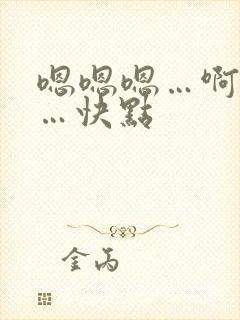 嗯嗯嗯…啊
…快點
金丙